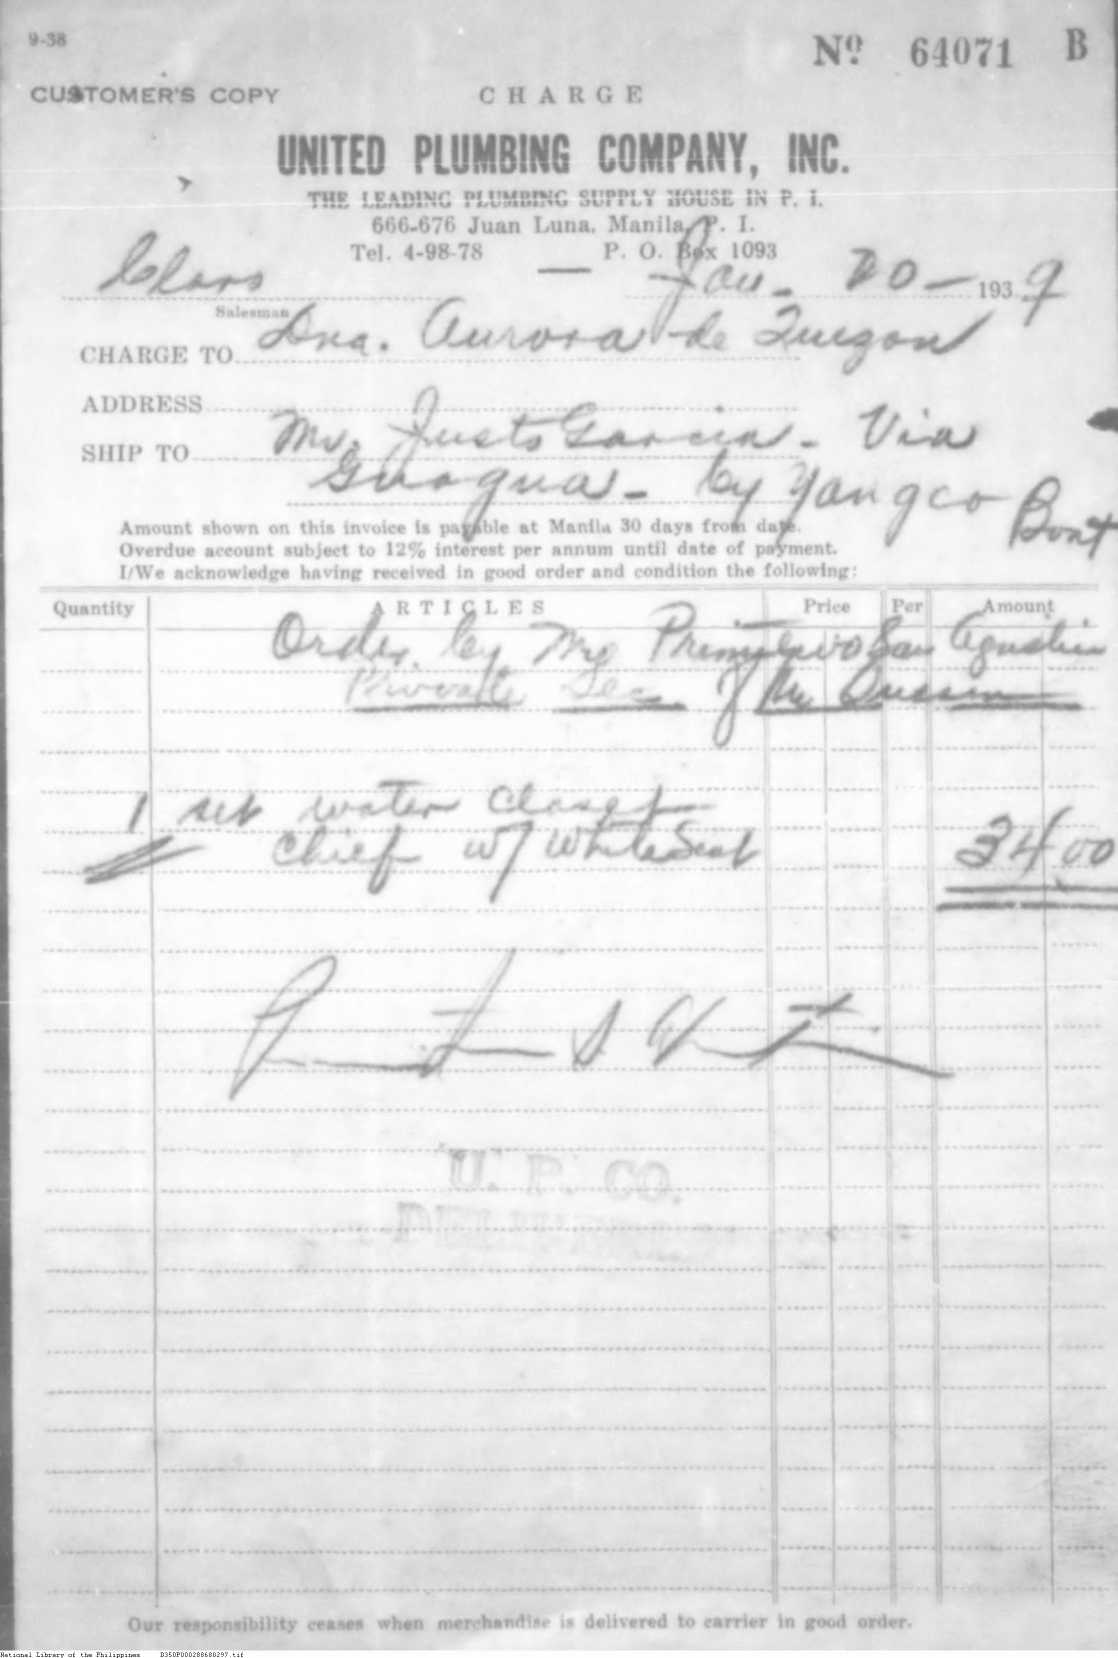 9-38
Nº 64071 B
CUSTOMER'S COPY
CHARGE
UNITED PLUMBING COMPANY, INC.
THE LEADING PLUMBING SUPPLY HOUSE IN P. I.
666-676 Juan Luna, Manila, P. I.
Tel. 4-98-78 P. O. Box 1093
Jan. 20- 1939
Salesman
CHARGE TO Dna. Aurora de Quezon
ADDRESS
SHIP TO Mr. Justo Garcia - Via
Guagua - by Yangco Boat
Amount shown on this invoice is payable at Manila 30 days from date.
Overdue account subject to 12% interest per annum until date of payment.
I/We acknowledge having received in good order and condition the following:
Quantity ARTICLES Price Per Amount
Order by Mr Primitivo San Agustin
Private Sec. of Mr Quezon
1 set water closet
Chief w/ White Seat 34.00
U. P. CO.
Our responsibility ceases when merchandise is delivered to carrier in good order.
National Library of the Philippines B350P000288680297.tif